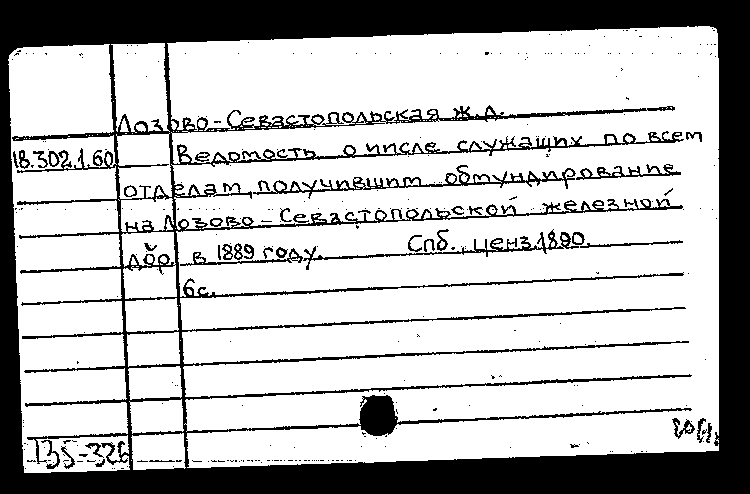 Лозово-Севастопольская ж.д.
18.302.1.60 Ведомость о числе служащих по всем
отделам, получившим обмундирование
на Лозово-Севастопольской железной
дор. в 1889 году. Спб., ценз. 1890.
6с.
135-326